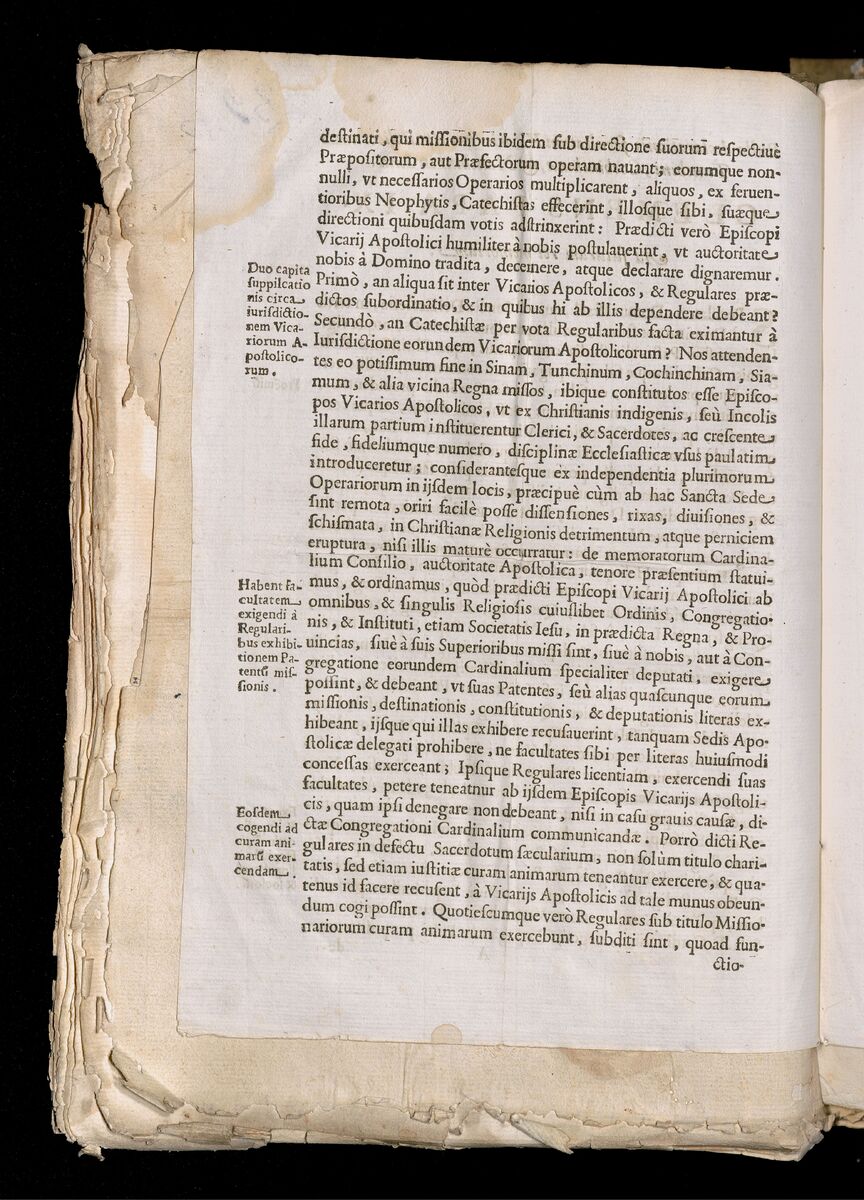 destinati, qui missionibus ibidem sub directione suorum respectiuè
Præpositorum, aut Præfectorum operam nauant; eorumque non-
nulli, vt necessarios Operarios multiplicarent, aliquos, ex feruen-
tioribus Neophytis, Catechistas effecerint, illosque sibi, suæque
directioni quibusdam votis adstrinxerint: Prædicti verò Episcopi
Vicarij Apostolici humiliter à nobis postulauerint, vt auctoritate
nobis à Domino tradita, decernere, atque declarare dignaremur.
Primò, an aliqua sit inter Vicarios Apostolicos, & Regulares præ-
dictos subordinatio, & in quibus hi ab illis dependere debeant?
Secundò, an Catechistæ per vota Regularibus facta eximantur à
Iurisdictione eorundem Vicariorum Apostolicorum? Nos attenden-
tes eo potissimum fine in Sinam, Tunchinum, Cochinchinam, Sia-
mum, & alia vicina Regna missos, ibique constitutos esse Episco-
pos Vicarios Apostolicos, vt ex Christianis indigenis, seù Incolis
illarum partium instituerentur Clerici, & Sacerdotes, ac crescente
fide, fideliumque numero, disciplinæ Ecclesiasticæ vsus paulatim
introduceretur; considerantesque ex independentia plurimorum
Operariorum in ijsdem locis, præcipuè cùm ab hac Sancta Sede
sint remota, oriri facilè posse dissensiones, rixas, diuisiones, &
schismata, in Christianæ Religionis detrimentum, atque perniciem
eruptura, nisi illis maturè occurratur: de memoratorum Cardina-
lium Consilio, auctoritate Apostolica, tenore præsentium statui-
mus, & ordinamus, quòd prædicti Episcopi Vicarij Apostolici ab
omnibus, & singulis Religiosis cuiuslibet Ordinis, Congregatio-
nis, & Instituti, etiam Societatis Iesu, in prædicta Regna, & Pro-
uincias, siuè à suis Superioribus missi sint, siuè à nobis, aut à Con-
gregatione eorundem Cardinalium specialiter deputati, exigere
possint, & debeant, vt suas Patentes, seù alias quascunque eorum
missionis, destinationis, constitutionis, & deputationis literas ex-
hibeant, ijsque qui illas exhibere recusauerint, tanquam Sedis Apo-
stolicæ delegati prohibere, ne facultates sibi per literas huiusmodi
concessas exerceant; Ipsique Regulares licentiam, exercendi suas
facultates, petere teneatnur ab ijsdem Episcopis Vicarijs Apostoli-
cis, quam ipsi denegare non debeant, nisi in casu grauis causæ, di-
ctæ Congregationi Cardinalium communicandæ. Porrò dicti Re-
gulares in defectu Sacerdotum sæcularium, non solùm titulo chari-
tatis, sed etiam iustitiæ curam animarum teneantur exercere, & qua-
tenus id facere recusent, à Vicarijs Apostolicis ad tale munus obeun-
dum cogi possint. Quotiescumque verò Regulares sub titulo Missio-
nariorum curam animarum exercebunt, subditi sint, quoad fun-
ctio-
Duo capita
suppilcatio
nis circa
iurisdictio-
nem Vica-
riorum A-
postolico-
rum.
Habent fa-
cultatem
exigendi à
Regulari-
bus exhibi-
tionem Pa-
tentũ mis-
sionis.
Eosdem
cogendi ad
curam ani-
marũ exer-
cendam.